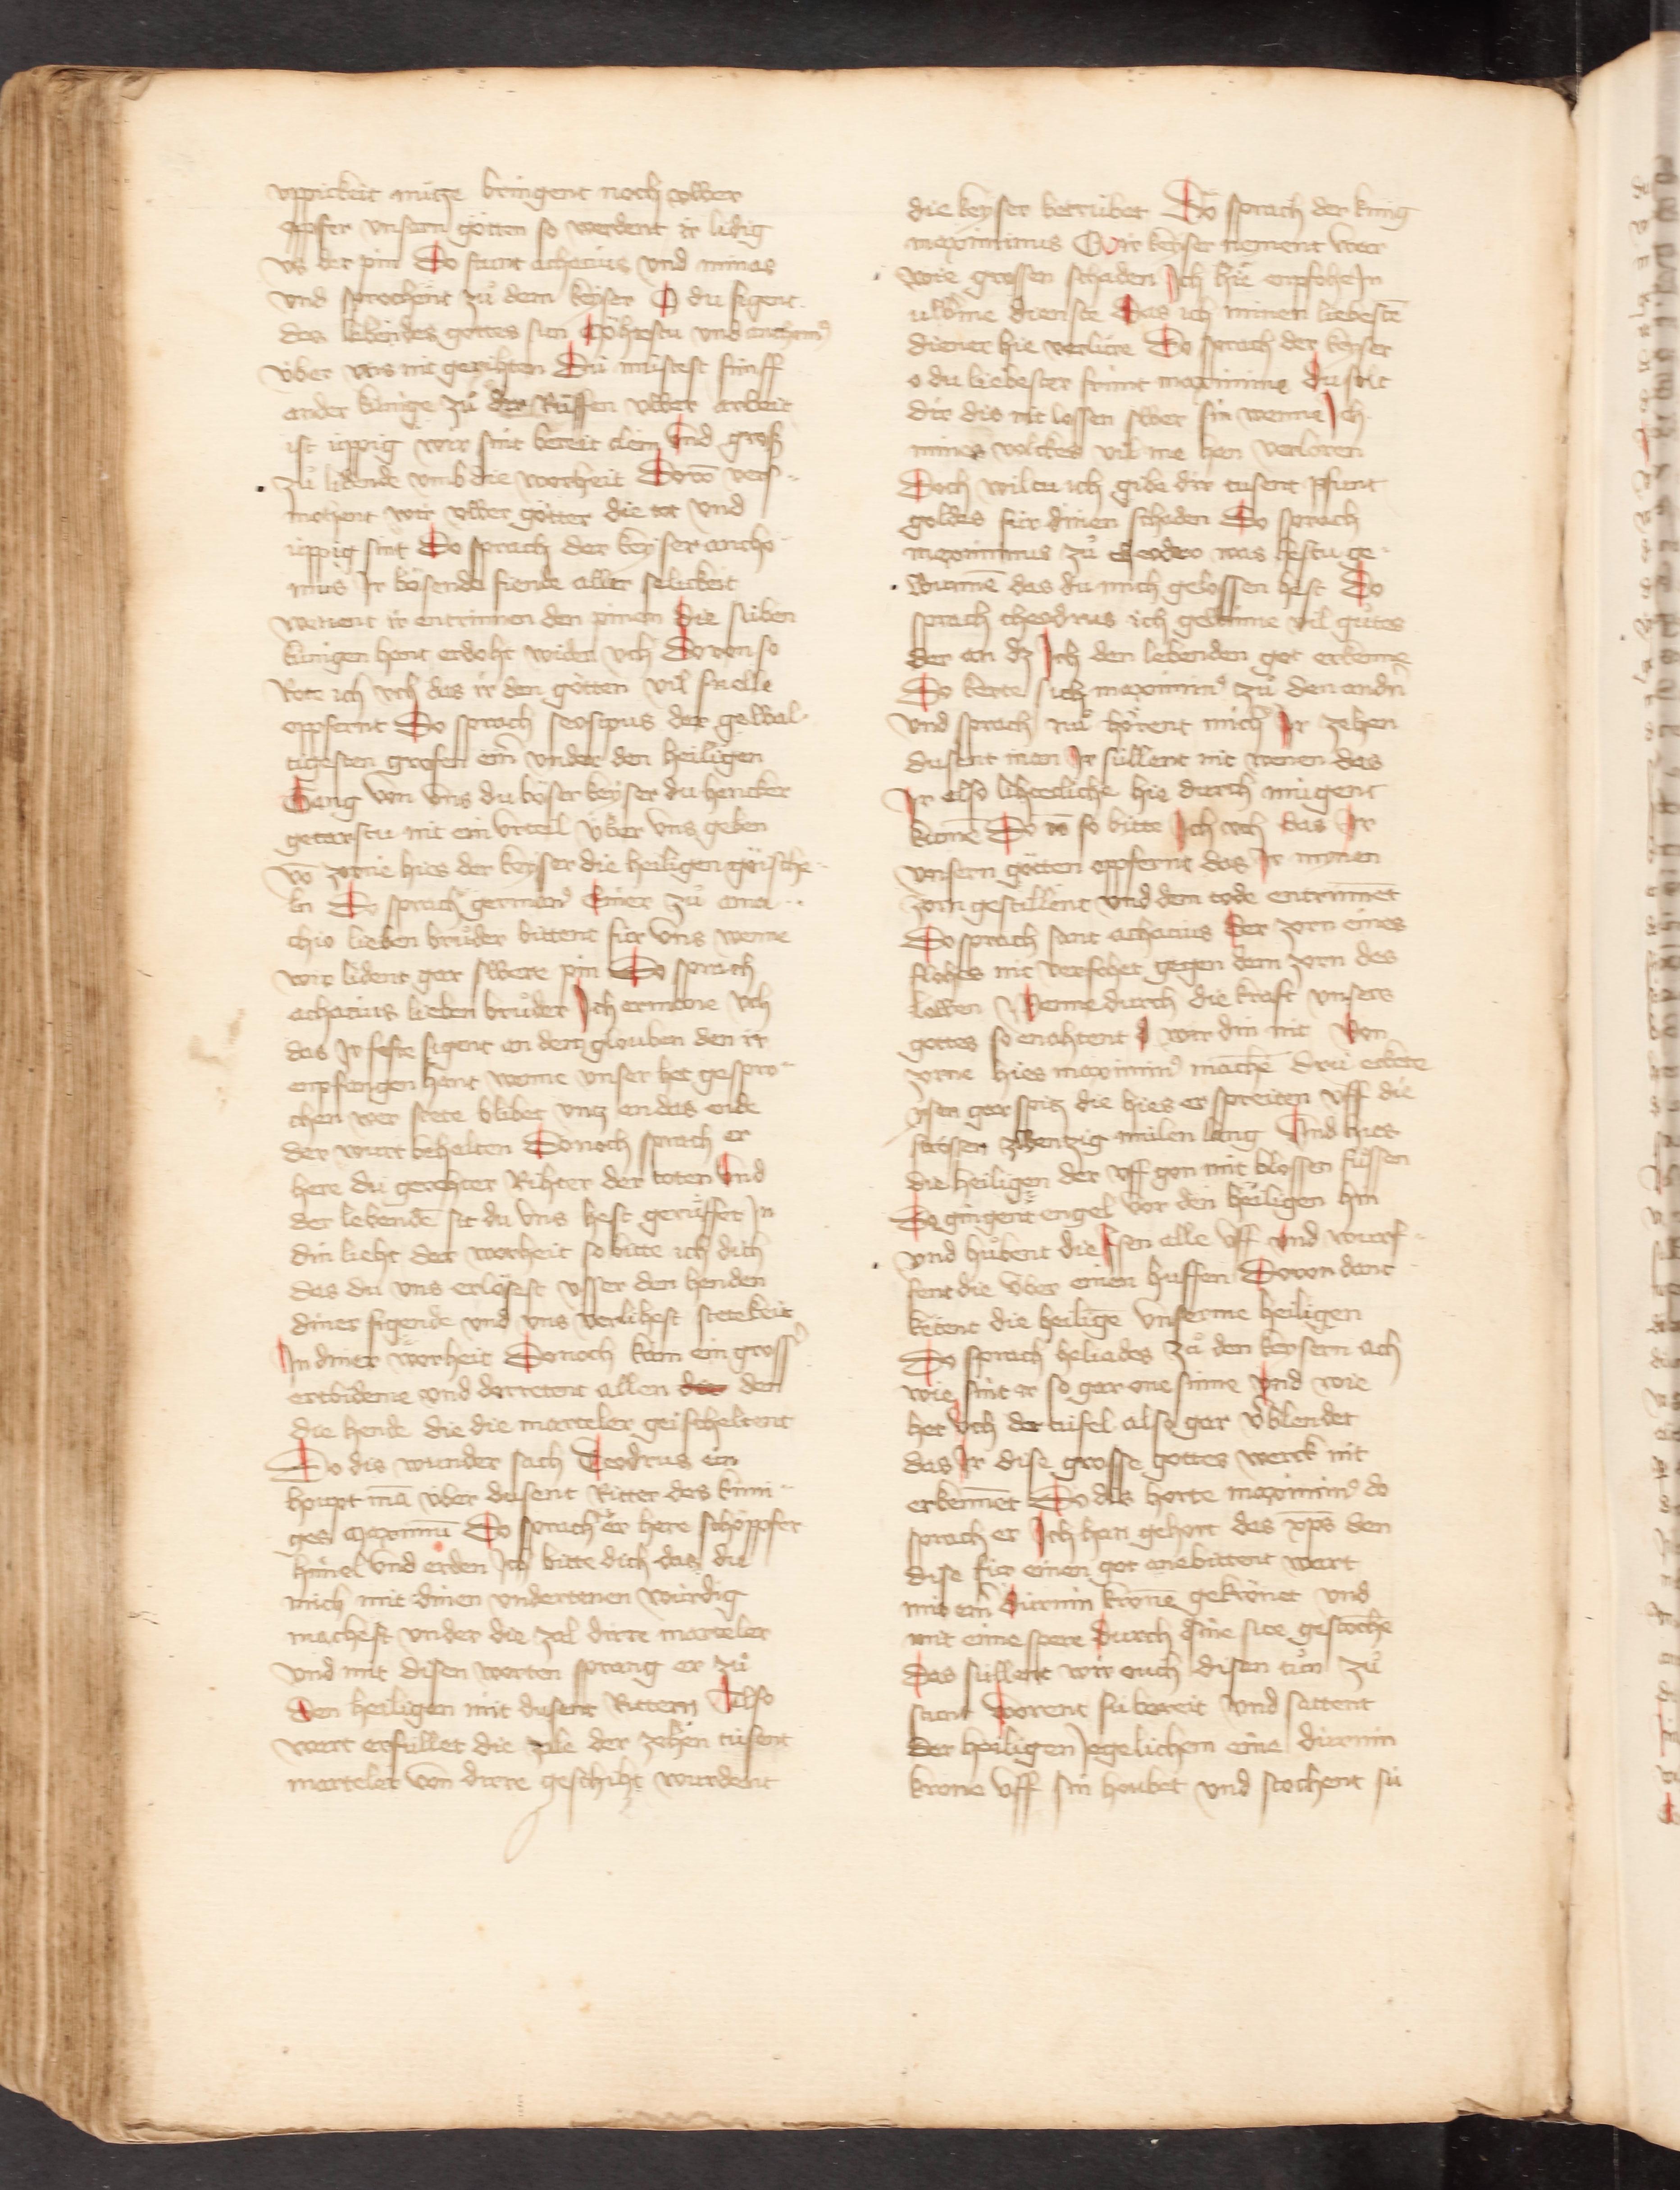 vppickeit nütze bringent noch uwer
oppfer vnsern götten so werdent ir lidig
vs der pin Do stunt achacius vnd minas
vnd sprochent zů dem keyser O du figent
des lebendes gottes sun möhtestu vnd
über vns nit gerihten Du müstest fünff
ander künige zů dir Rüffen uwer arbeit
ist üppig wir sint bereit clein vnd groß
zů lidende vmb die worheit Dovō vers
mohent wir uwer götter die tot vnd
üppig sint Do sprach der keyser antho
nius Ir bösende fiende aller selickeit
wenent ir entrinnen den pinen die süben
künigen hent erdoht widen vch Dovon so
Rote ich vch das ir den götten vil snelle
oppfernt Do sprach der gewal
tigesten grofen ein vnder den heiligen
Gang von vns du böser keyser du hencker
getarstu nit ein vrteil über vns geben
vō zorne hies der keyser die heiligen geische
ln Do sprach german⁹ einer zů ama
chio lieben brůder bittent für vns wenne
wir lident gar swere pin Do sprach
achacius lieben brůder Ich ermane vch
das Ir feste sigent an dem glouben den ir
enpfangen hant wenne vnser her gespro
chen wer stete blibet vntz an das ende
der wurt behalten Donoch sprach er
here du gerehter Rihter der toten vnd
der lebendē sit du vns hest gerüffet In
din lieht der worheit so bitte ich dich
das du vns erlösest vsser den henden
diner figende vnd vns verlihest stetekeit
In diner worheit Donoch kam ein gross
ertbideme vnd dorretent allen den
die hende die die marteler geischeltent
Do dis wunder sach Teodrus ein
houpt mā über dusent Ritter des küni
ges maximinū Do sprach er here schöppfer
himel vnd erden Ich bitte dich das du
mich mit dinen vndertenen würdig
machest vnder die zal dirre marteler
vnd mit disen worten sprang er zů
den heiligen mit dusent Rittern Also
wart erfüllet die zale der zehen tusent
marteler von dirre geschiht wurdent
die keyser betrübet Do sprach der künig
maximinus Wir keyser nement war
wie grossen schaden Ich hie enpfohe In
uwrme dienste Das ich minen liebestē
diener hie verlüre Do sprach der keyser
o du liebester frünt maximine du solt
dir dis nit lossen swer sin wenne Ich
mines volckes vil me han verloren
Doch wiltu ich gibe dir tusent pfunt
goldes für dinen schaden Do sprach
maximinus zů theodero was hestu ge
wunnē das du mich gelossen hest Do
sprach theodrus ich gewinne vil gůtes
der an dz Ich den lebenden got erkenne
Do kerte sich maximin⁹ zů den andn
vnd sprach nů hörent mich Ir zehen
dusent man Ir süllent nit wenen das
Ir also lihtecliche hie durch mügent
kumē Do vō so bitte Ich vch das Ir
vnsern götten oppfernt das Ir mynen
zorn gestillent vnd dem tode entrinnēt
Do sprach sant achacius der zorn eines
flohes nit verschet gegen dem zorn des
lowen Wenne durch die kraft vnsers
gottes so enahtent wir din nit Von
zorne hies maximin⁹ machē drü eckete
ysen gar spitz die hies er spreiten vff die
strossen zwentzig milen lang Vnd hies
die heiligen der vff gon mit blossen füssen
Do gingent engel vor den heiligen hin
vnd hůbent die Isen alle vff vnd wurf
fent die über einen huffen Dovon danc
ketent die heiligē vnserme heiligen
Do sprach heliades zů den keysern ach
wie sint ir so gar one sinne vnd wie
het vch der tüfel also gar v̄blendet
das Ir dise grosse gottes werck nit
erkennēt Do dis horte maximin⁹ do
sprach er Ich han gehort das xp̄s den
dise für einen got anebittent wart
mit ein dürnin kronē gekrönet vnd
mit eime spere durch sine site gestochē
Das süllent wir ouch disen tůn zů
stunt worent sü bereit vnd sattent
der heiligen Iegelichem eine dürnin
krone vff sin houbet vnd stochent sü